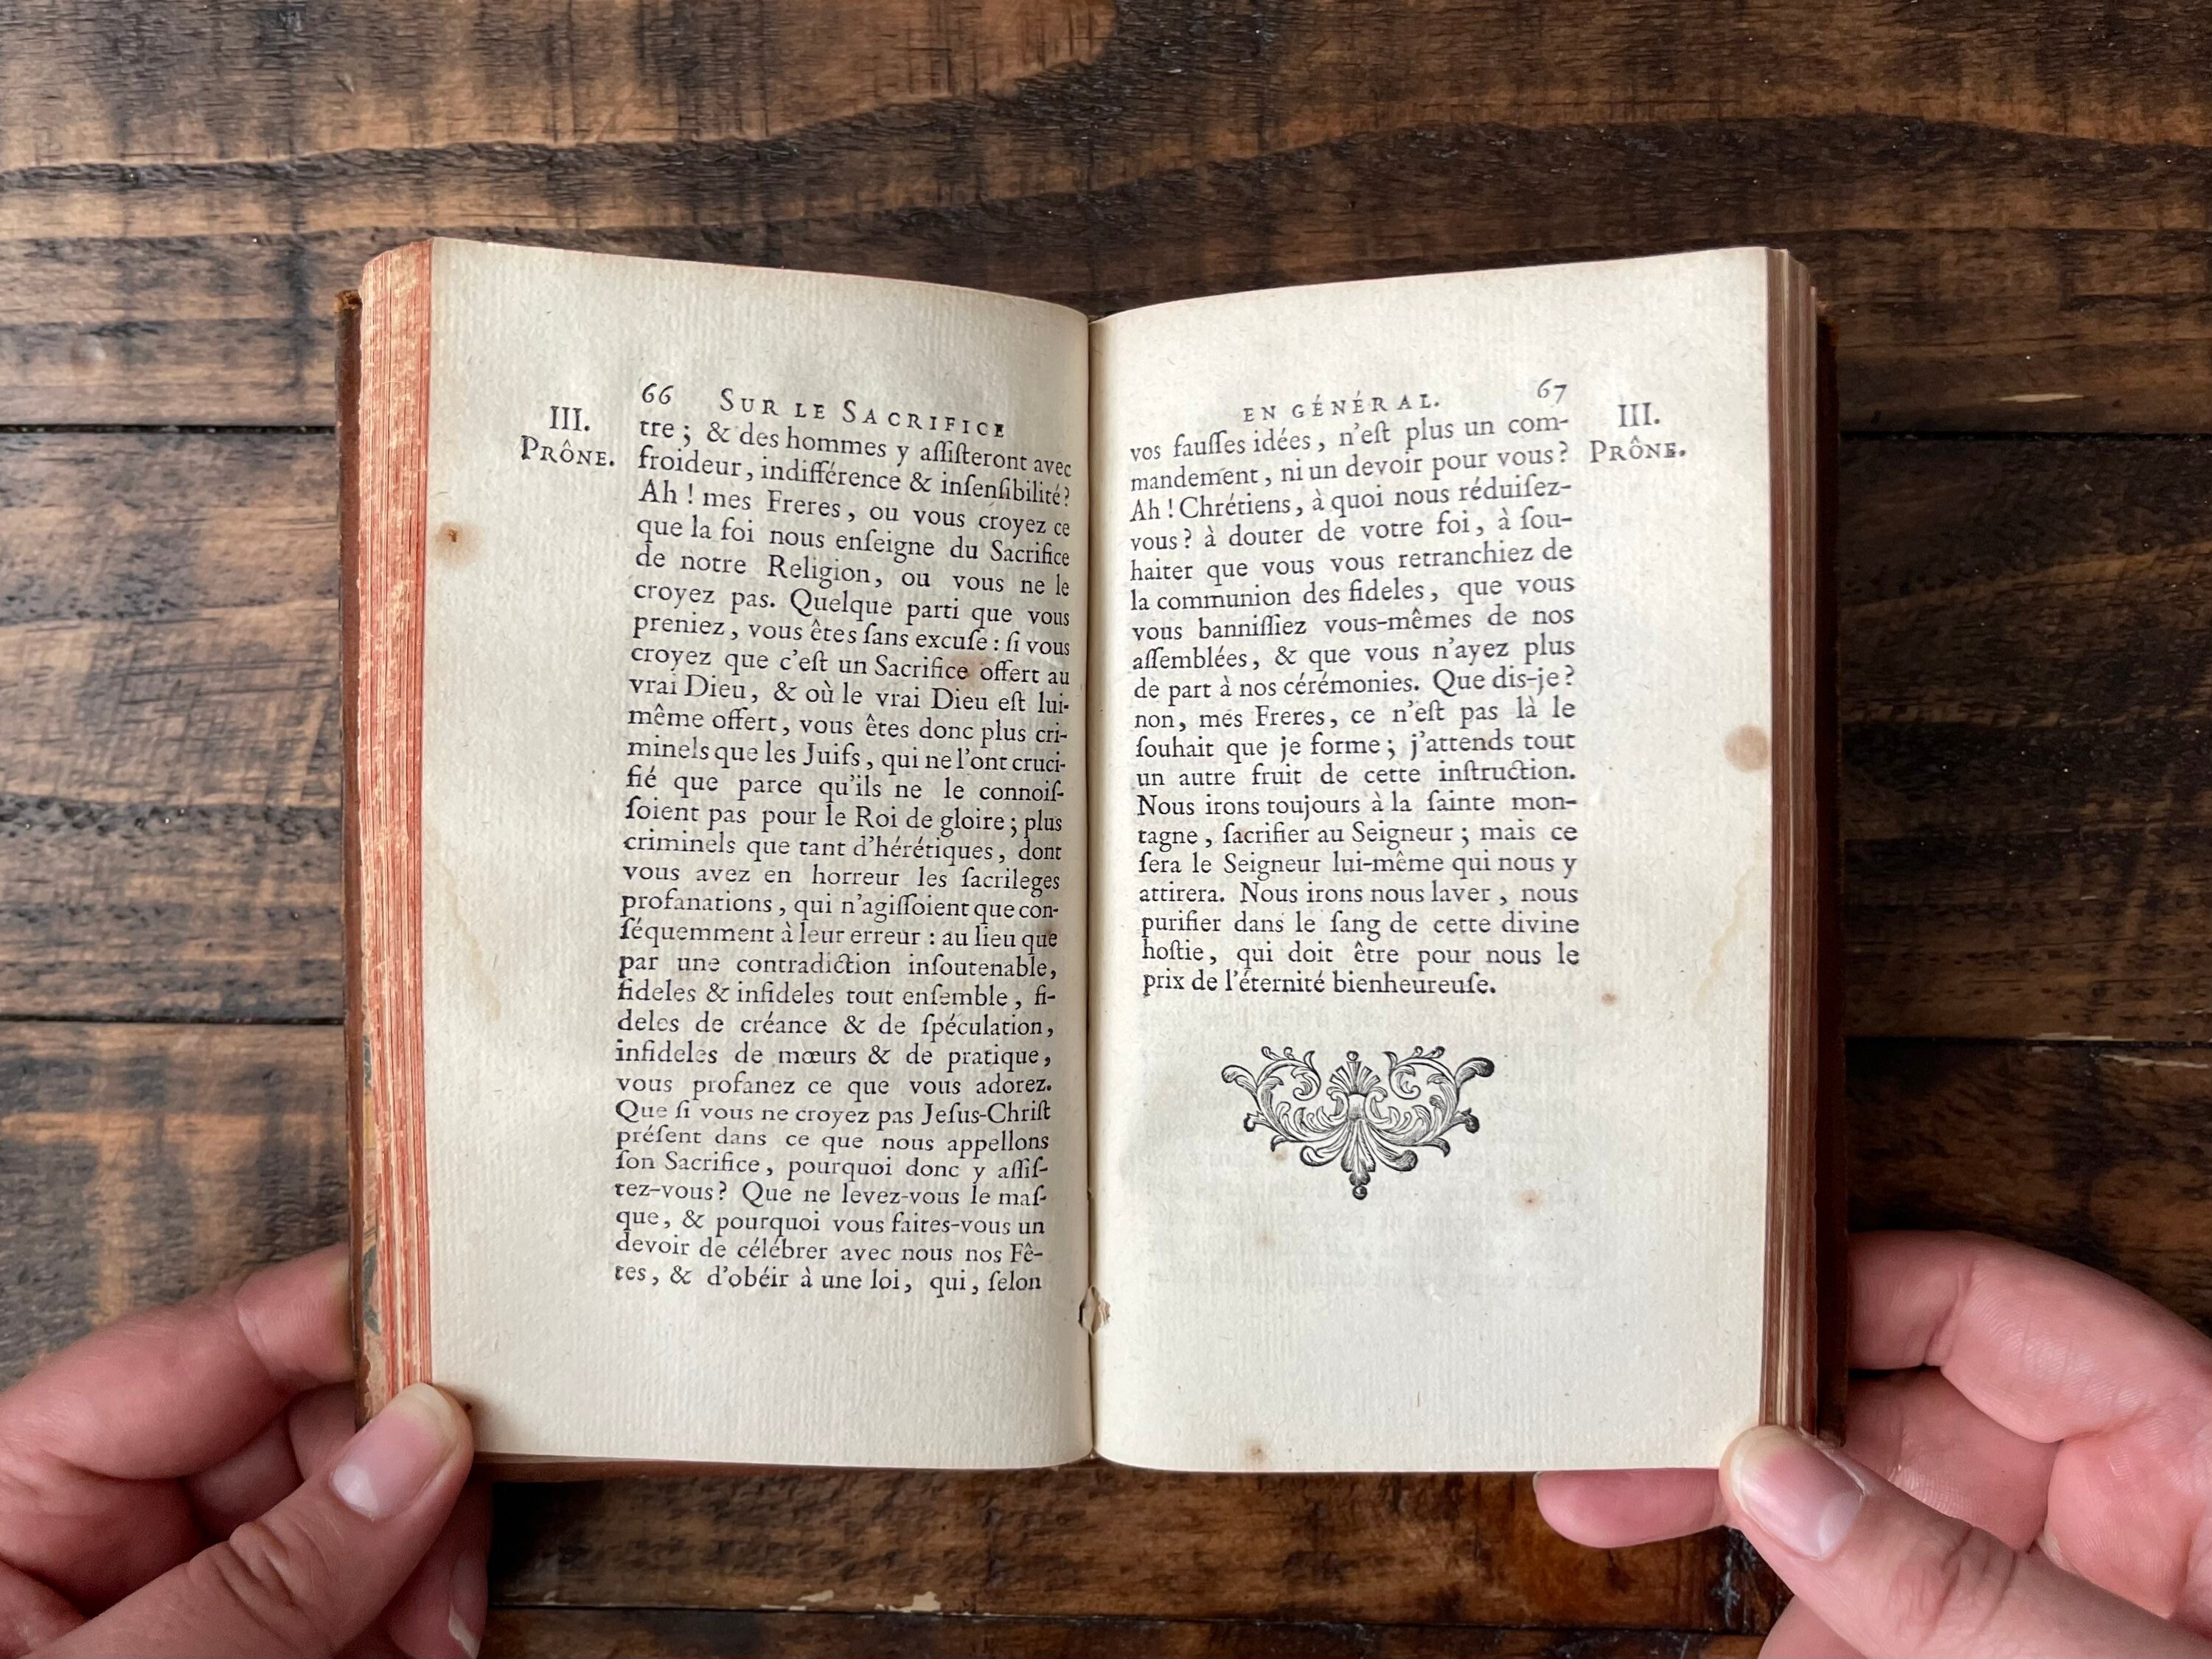 66 SUR LE SACRIFICE
III.
PRÔNE.
tre ; & des hommes y aſſiſteront avec
froideur, indifférence & inſenſibilité ?
Ah ! mes Freres, ou vous croyez ce
que la foi nous enſeigne du Sacrifice
de notre Religion, ou vous ne le
croyez pas. Quelque parti que vous
preniez, vous êtes ſans excuſe : ſi vous
croyez que c'eſt un Sacrifice offert au
vrai Dieu, & où le vrai Dieu eſt lui-
même offert, vous êtes donc plus cri-
minels que les Juifs, qui ne l'ont cruci-
fié que parce qu'ils ne le connoiſ-
ſoient pas pour le Roi de gloire ; plus
criminels que tant d'hérétiques, dont
vous avez en horreur les ſacrileges
profanations, qui n'agiſſoient que con-
ſéquemment à leur erreur : au lieu que
par une contradiction inſoutenable,
fideles & infideles tout enſemble, fi-
deles de créance & de ſpéculation,
infideles de mœurs & de pratique,
vous profanez ce que vous adorez.
Que ſi vous ne croyez pas Jeſus-Chriſt
préſent dans ce que nous appellons
ſon Sacrifice, pourquoi donc y aſſiſ-
tez-vous ? Que ne levez-vous le maſ-
que, & pourquoi vous faites-vous un
devoir de célébrer avec nous nos Fê-
tes, & d'obéir à une loi, qui, ſelon
EN GÉNÉRAL. 67
III.
PRÔNE.
vos fauſſes idées, n'eſt plus un com-
mandement, ni un devoir pour vous ?
Ah ! Chrétiens, à quoi nous réduiſez-
vous ? à douter de votre foi, à ſou-
haiter que vous vous retranchiez de
la communion des fideles, que vous
vous banniſſiez vous-mêmes de nos
aſſemblées, & que vous n'ayez plus
de part à nos cérémonies. Que dis-je ?
non, mes Freres, ce n'eſt pas là le
ſouhait que je forme ; j'attends tout
un autre fruit de cette inſtruction.
Nous irons toujours à la ſainte mon-
tagne, ſacrifier au Seigneur ; mais ce
ſera le Seigneur lui-même qui nous y
attirera. Nous irons nous laver, nous
purifier dans le ſang de cette divine
hoſtie, qui doit être pour nous le
prix de l'éternité bienheureuſe.